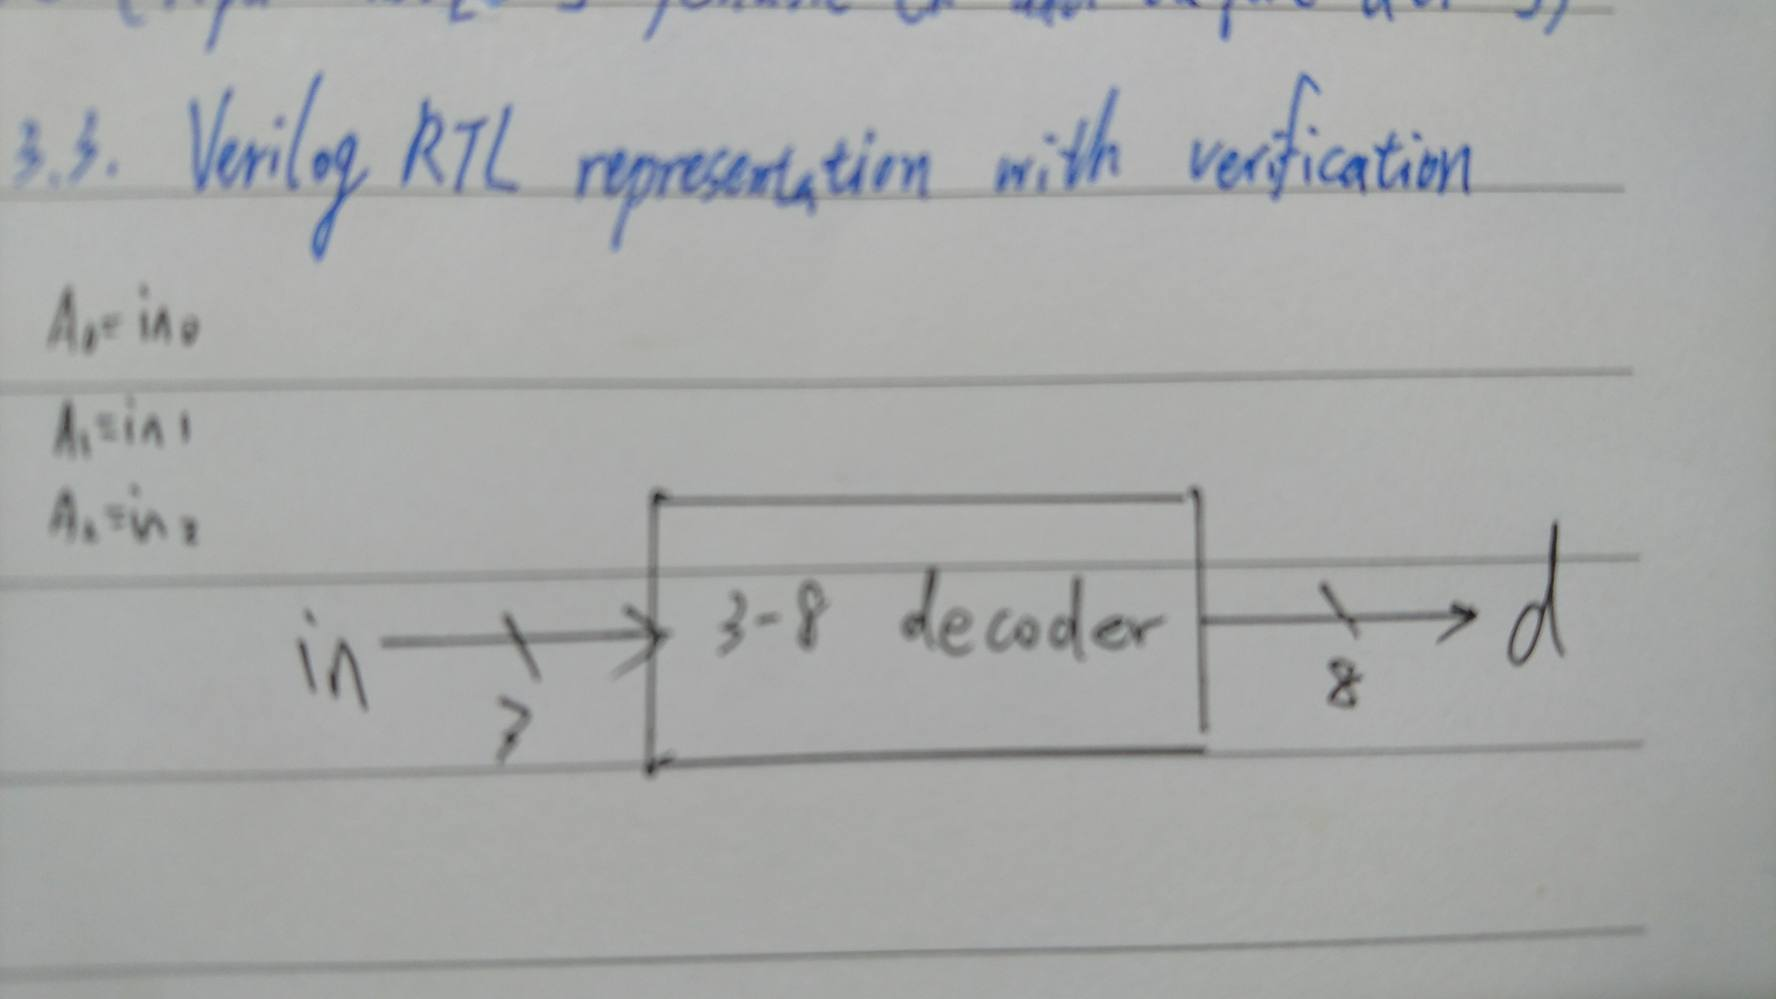 3.3. Verilog RTL representation with verification
A0 = in0
A1 = in1
A2 = in2
in 3-8 decoder d
8